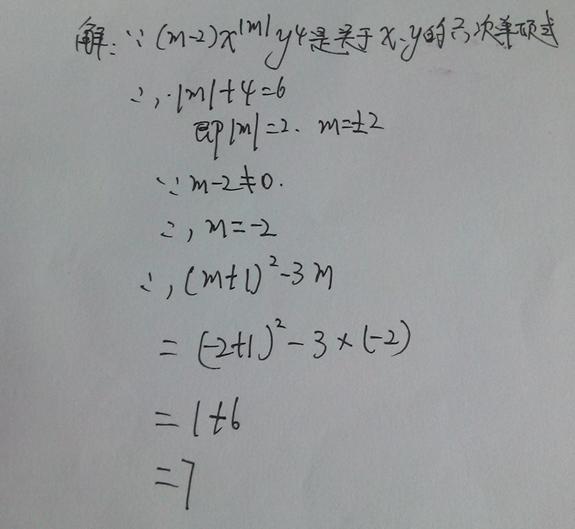 解:∵(m-2)x^|m|y4是关于x、y的六次单项式
∴|m|+4=6
即|m|=2. m=±2
∵m-2≠0.
∴m=-2
∴(m+1)²-3m
=(-2+1)²-3×(-2)
=1+6
=7